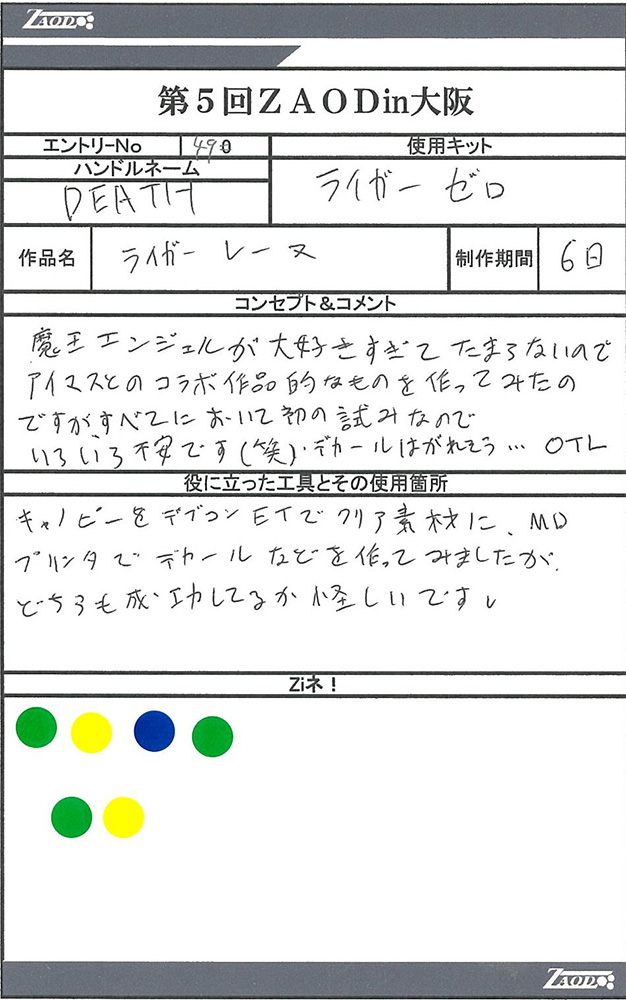 ZAOD
第5回ZAODin大阪
エントリーNo 490
使用キット
ハンドルネーム
DEATH
ライガー ゼロ
作品名
ライガー レーヌ
制作期間
6日
コンセプト&コメント
魔王エンジェルが大好きすぎてたまらないので
アイマスとのコラボ作品的なものを作ってみたの
ですがすべてにおいて初の試みなので
いろいろ不安です(笑)・デカールはがれそう… OTL
役に立った工具とその使用箇所
キャノピーをデブコンETでクリア素材に、MD
プリンタでデカールなどを作ってみましたが、
どちらも成功してるか怪しいです。
Ziネ!
ZAOD